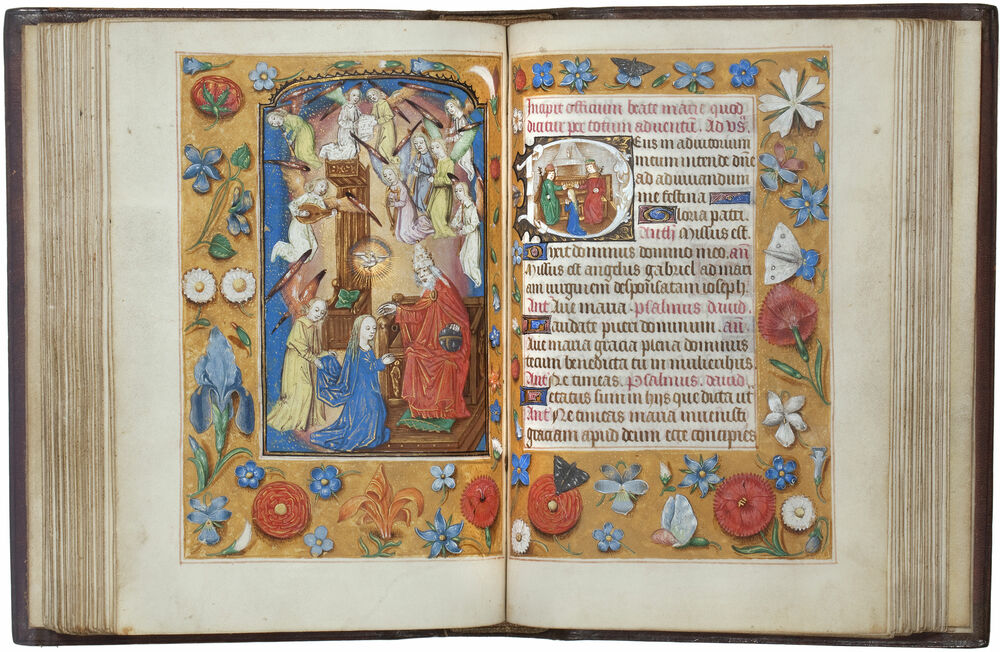 Incipit officium beate marie quod
dicitur per totum adventu. Ad vs.
Deus in adiutorium
meum intende dne
ad adiuvandum
me festina
Gloria patri.
Anth Missus est.
Dixit dominus domino meo. an
Missus est angelus gabriel ad mari
am virginem desponsatam ioseph.
Ant Ave maria. Psalmus david.
Laudate pueri dominum. an
Ave maria gracia plena dominus
tecum benedicta tu in mulieribus
Ant Ne timeas. Psalmus. david.
Letatus sum in hys que dicta ut
Ant Ne timeas maria invenisti
graciam apud deum ecce concipies